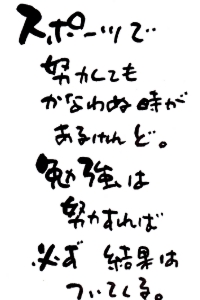 スポーツで
努力しても
かなわぬ時が
あるけれど。
勉強は
努力すれば
必ず 結果は
ついてくる。